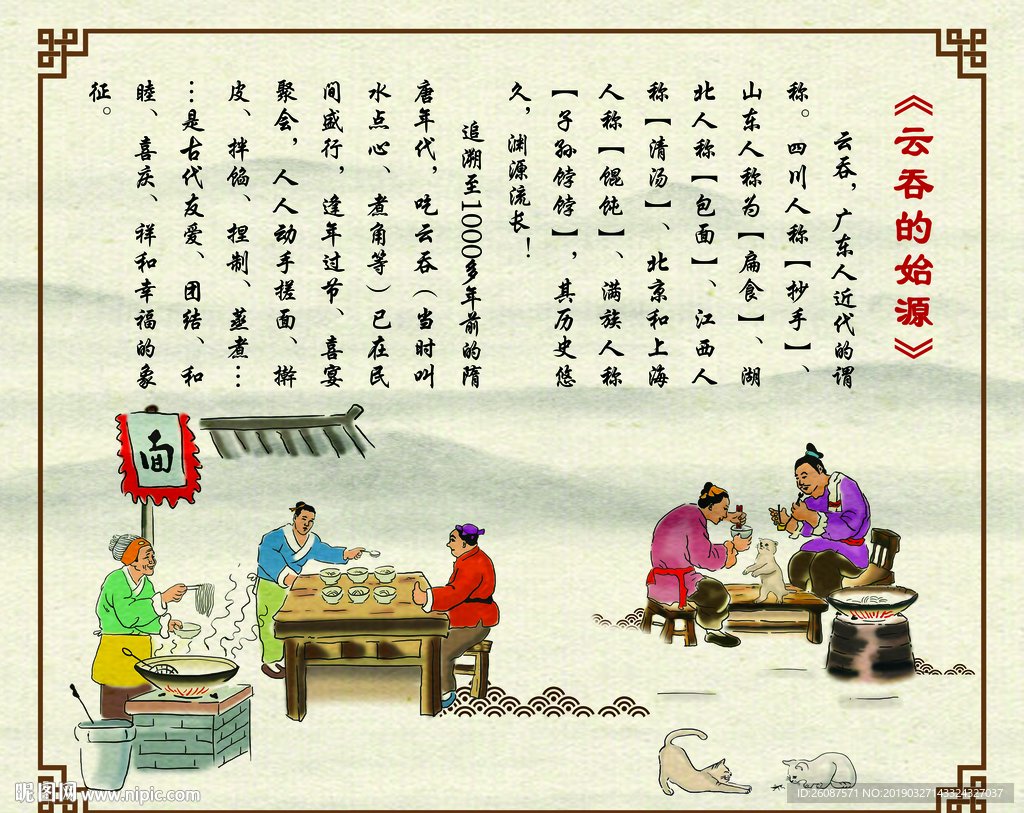 《云吞的始源》
云吞，广东人近代的谓
称。四川人称【抄手】、
山东人称为【扁食】、湖
北人称【包面】、江西人
称【清汤】、北京和上海
人称【馄饨】、满族人称
【子孙饽饽】，其历史悠
久，渊源流长！
追溯至1000多年前的隋
唐年代，吃云吞（当时叫
水点心、煮角等）已在民
间盛行，逢年过节、喜宴
聚会，人人动手搓面、擀
皮、拌馅、捏制、蒸煮…
…是古代友爱、团结、和
睦、喜庆、祥和幸福的象
征。
面
昵图网 www.nipic.com
ID:26087571 NO:20190327143324327037